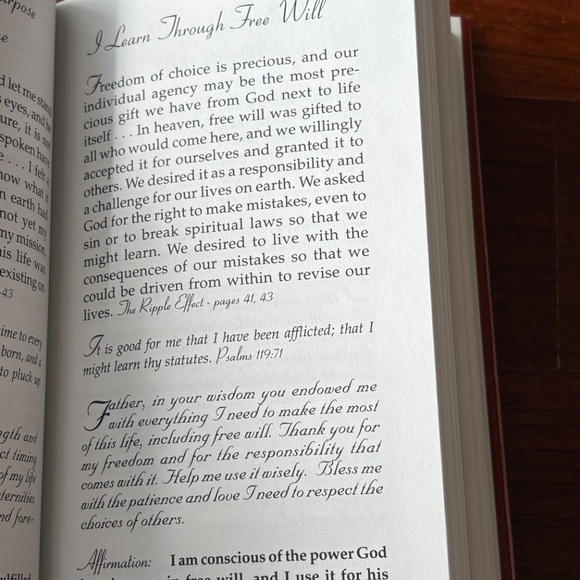 urpose
e
d let me stand
s eyes, and he
ure, it is not
spoken have
e . . . . I felt a
now what it
n earth had
not yet my
my mission,
is life was
existing on
-43
ime to every
born, and a
to pluck up
ngth and
ct timing
of my life
ternities
nd fore-
ulfilled
I Learn Through Free Will
Freedom of choice is precious, and our
individual agency may be the most pre-
cious gift we have from God next to life
itself . . . In heaven, free will was gifted to
all who would come here, and we willingly
accepted it for ourselves and granted it to
others. We desired it as a responsibility and
a challenge for our lives on earth. We asked
God for the right to make mistakes, even to
sin or to break spiritual laws so that we
might learn. We desired to live with the
consequences of our mistakes so that we
could be driven from within to revise our
lives. The Ripple Effect - pages 41, 43
It is good for me that I have been afflicted; that I
might learn thy statutes. Psalms 119:71
Father, in your wisdom you endowed me
with everything I need to make the most
of this life, including free will. Thank you for
my freedom and for the responsibility that
comes with it. Help me use it wisely. Bless me
with the patience and love I need to respect the
choices of others.
Affirmation: I am conscious of the power God
in free will, and I use it for his